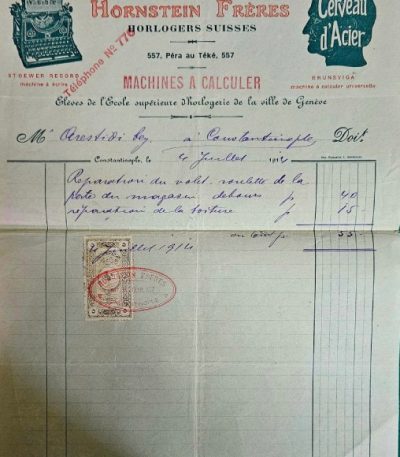 HORNSTEIN FRÈRES
HORLOGERS SUISSES
Cerveau
d'Acier
Téléphone No 776
557, Péra au Téké, 557
STOEWER RECORD
machine à écrire
MACHINES A CALCULER
BRUNSVIGA
machine à calculer universelle
Elèves de l'Ecole supérieure d'Horlogerie de la ville de Genève
M Arestidi Bey à Constantinople Doit
Constantinople, le 4 Juillet 1914
Réparation du volet roulette de la
porte du magasin dehors p 40
réparation de la toiture p 15
au total p 55
Juillet 1914
HORNSTEIN FRÈRES